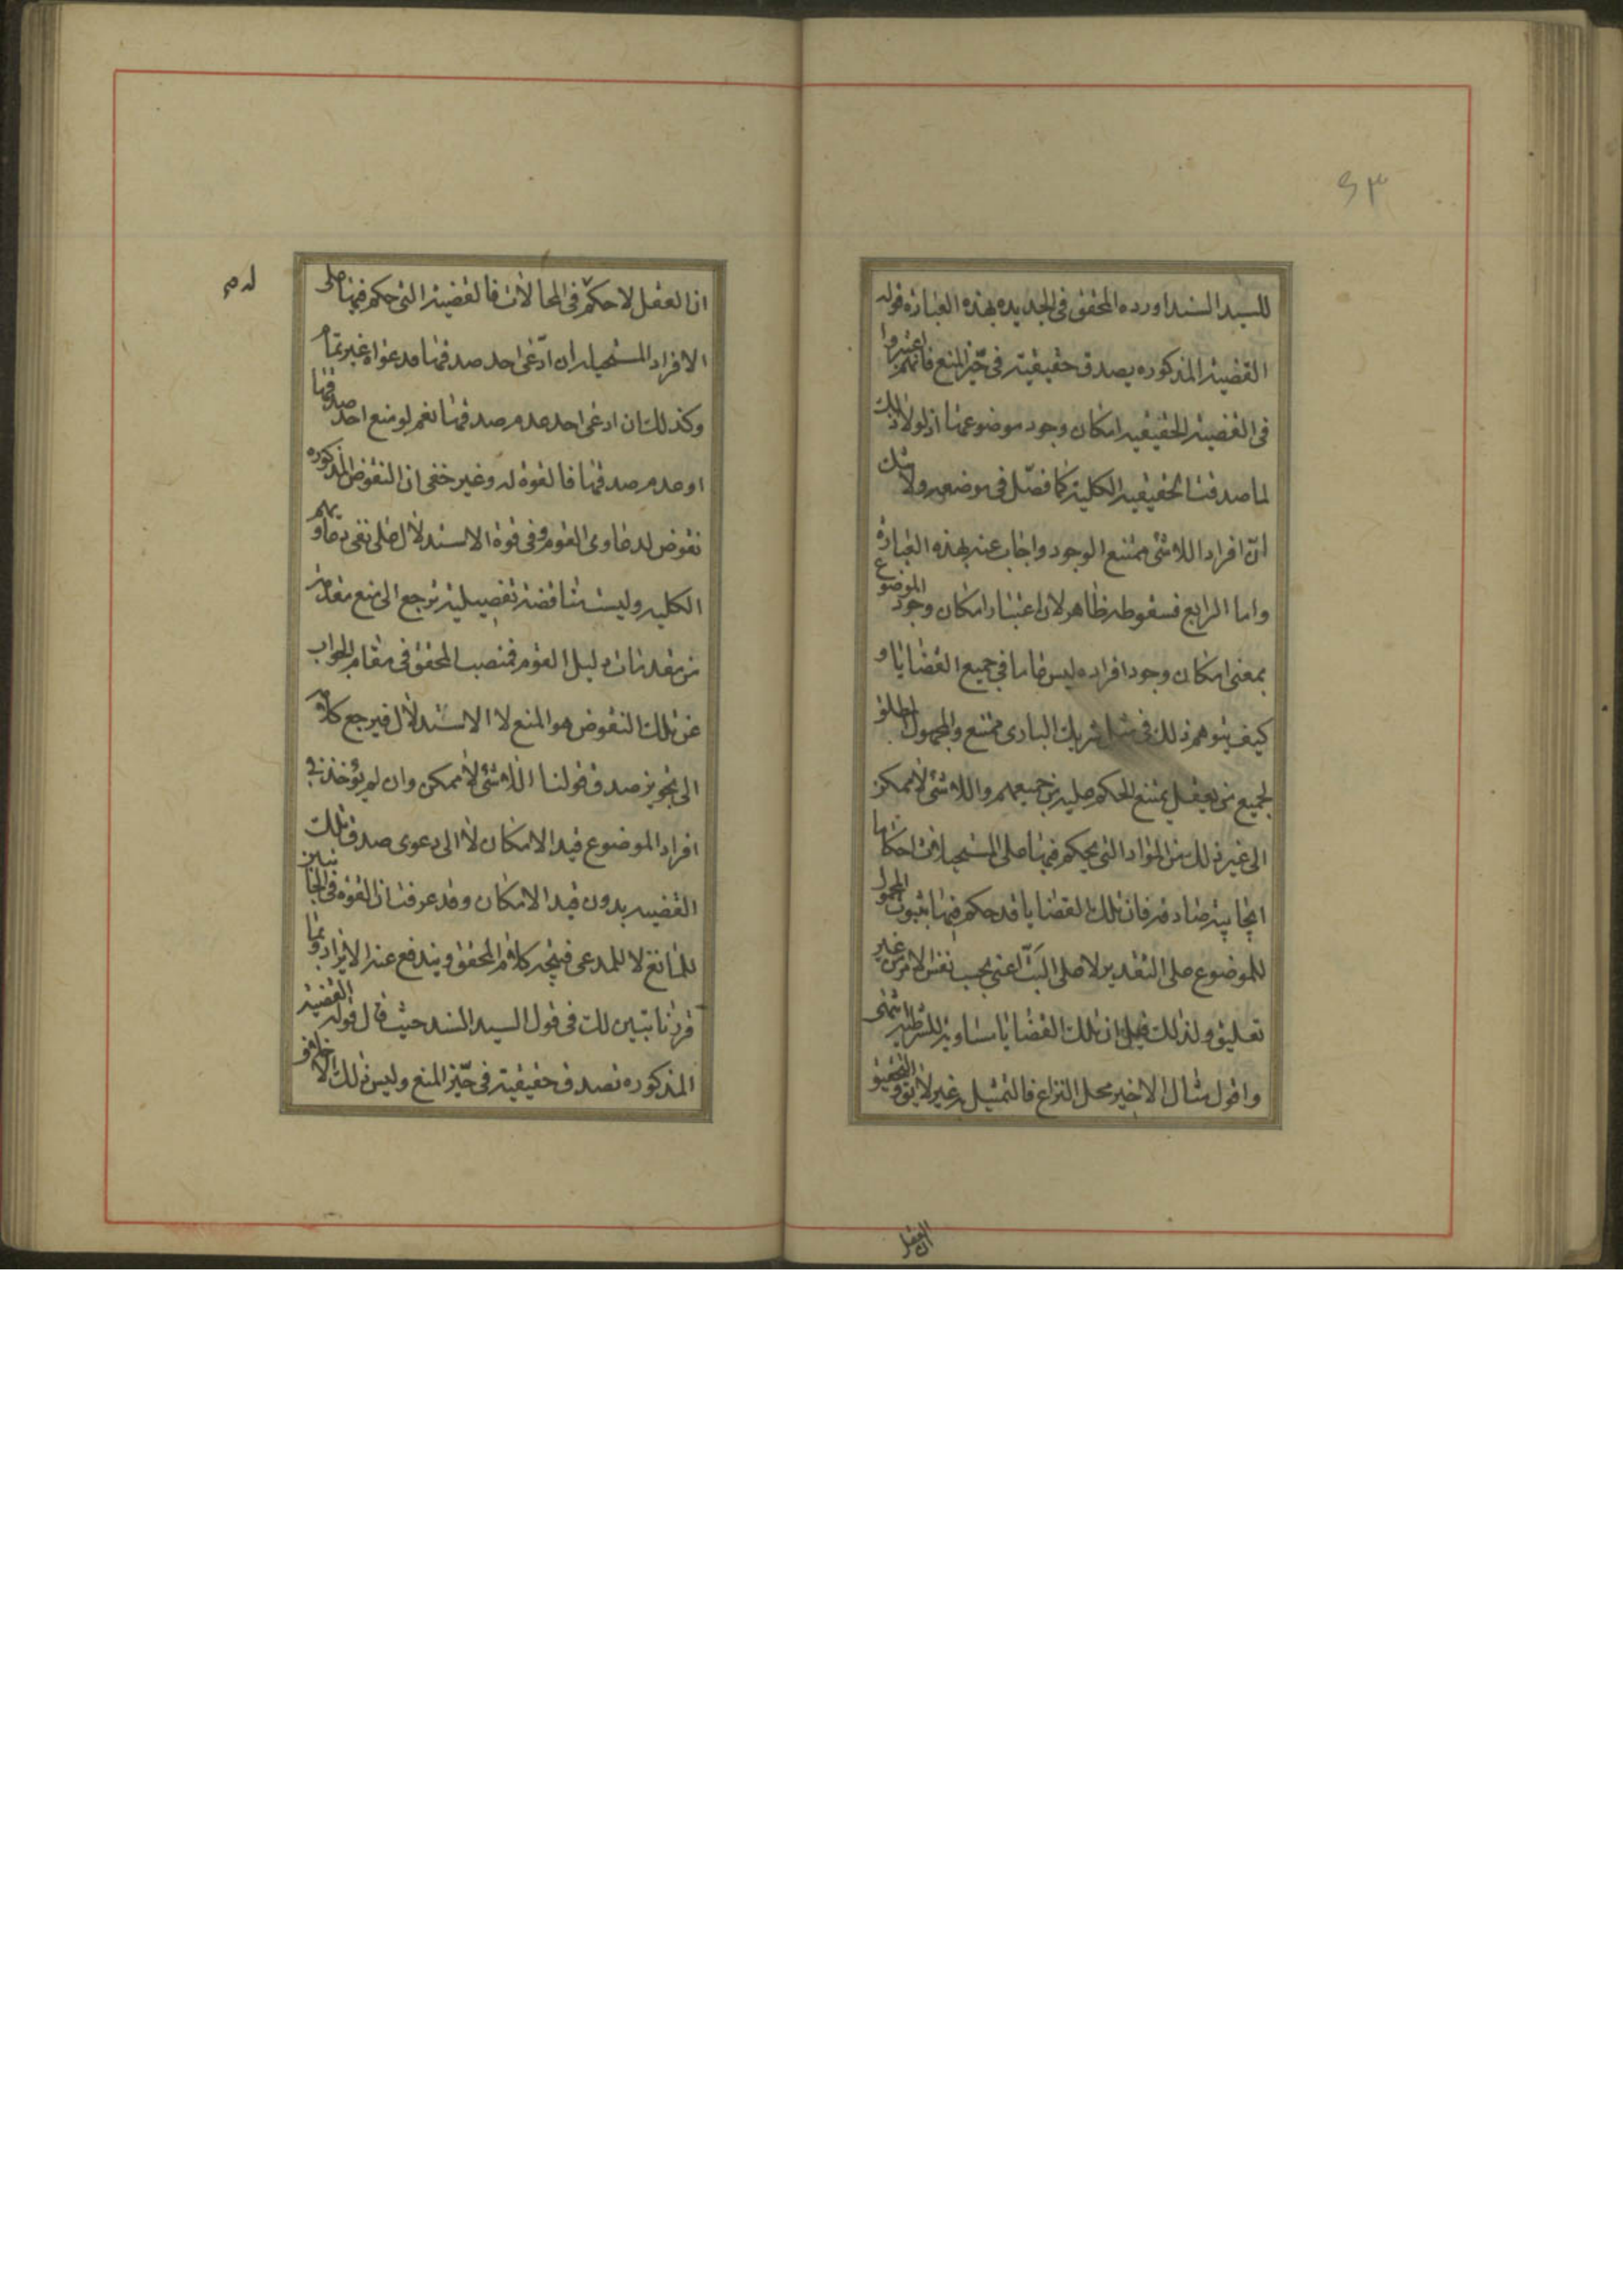 ٤٣
للسيد السند اورده المحقق فى الجديده بهذه العباره قوله
القضية المذكوره يصدق حقيقية فى حيّز المنع فانهم اعتبروا
فى القضية الحقيقيه امكان وجود موضوعها اذ لولا ذلك
لما صدقت الحقيقيه الكلية كما فصّل فى موضعه ولا شك
انّ افراد اللاشئ ممتنع الوجود واجاب عنه بهذه العبارة
واما الرابع فسقوطه ظاهر لان اعتبار امكان وجود الموضوع
بمعنى امكان وجود افراده ليس عاما في جميع القضايا و
كيف يتوهم ذلك فى مثل شريك البارى ممتنع والمجهول المطلق
لجميع من يعقل يمتنع الحكم عليه من جميعهم واللاشئ لا ممكن
الى غير ذلك من المواد التى يحكم فيها على المستحيلات احكاما
ايجابية صادقه فان تلك القضايا قد حكم فيها بثبوت المحمول
للموضوع على التقدير لا على البتّ اعنى بحسب نفس الامر من غير
تعليق ولذلك قيل ان تلك القضايا مساوية للشرطية انتهى
واقول مثال الاخير محل النزاع فالتمثيل به غير لائق والتحقيق
ان العقل
ان العقل لا حكم له فى المحالات فالقضية التى حكم فيها على
له صح
الافراد المستحيله ان ادّعى احد صدقها فدعواه غير تمام
وكذلك ان ادعى احد عدم صدقها نعم لو منع احد صدقها
او عدم صدقها فالقوة له وغير خفى ان النقوض المذكوره
نقوض لدعاوى القوم وفى قوة الاستدلال على نفى دعاويهم
الكليه وليست مناقضة تفصيلية ترجع الى منع مقدمة
من مقدمات دليل القوم فمنصب المحقق فى مقام الجواب
عن تلك النقوض هو المنع لا الاستدلال فيرجع كلامه
الى تجويز صدق قولنا اللاشئ لا ممكن وان لم يؤخذ فى
افراد الموضوع قيد الامكان لا الى دعوى صدق تلك
القضيه بدون قيد الامكان وقد عرفت ان القوة فى الجانبين
للمانع لا للمدعى فيتجه كلام المحقق ويندفع عنه الايراد وبما
قررنا تبين لك فى قول السيد السند حيث قال قوله القضية
المذكوره تصدق حقيقية فى حيّز المنع وليس ذلك الا خلاف